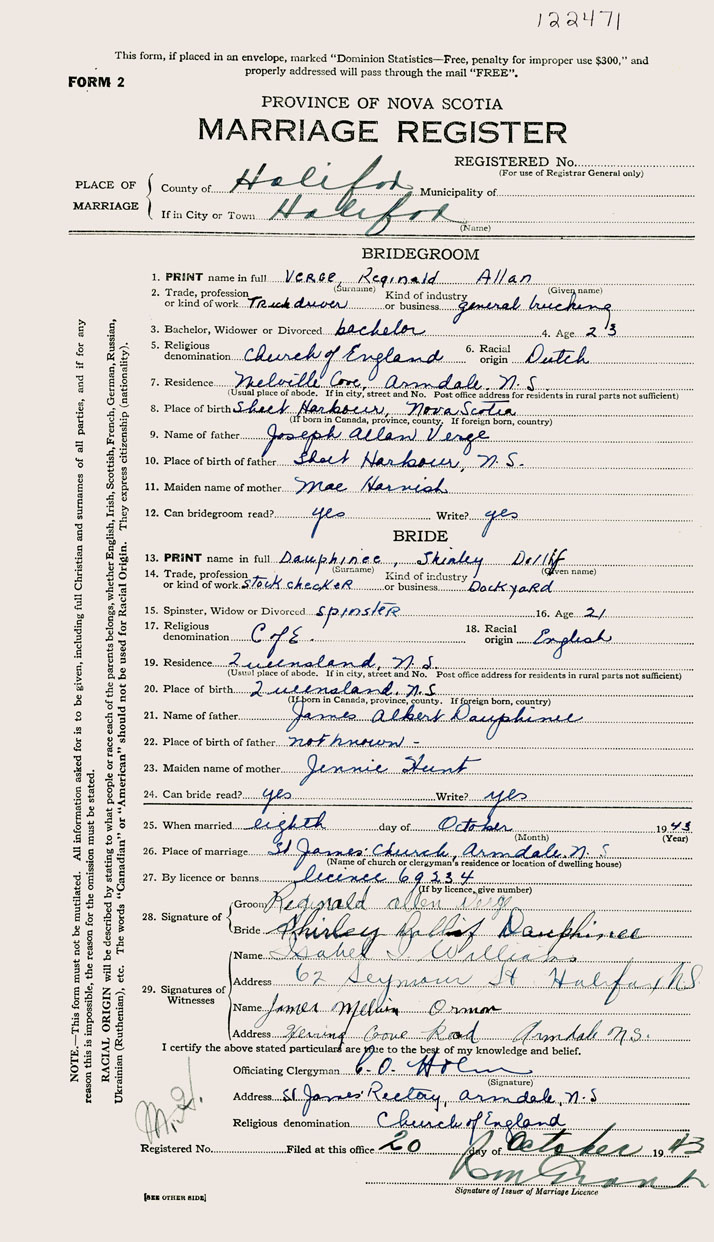 122471
This form, if placed in an envelope, marked "Dominion Statistics—Free, penalty for improper use $300," and
properly addressed will pass through the mail "FREE".
FORM 2
PROVINCE OF NOVA SCOTIA
MARRIAGE REGISTER
REGISTERED No.
(For use of Registrar General only)
PLACE OF MARRIAGE
County of Halifax Municipality of
If in City or Town Halifax
(Name)
BRIDEGROOM
1. PRINT name in full VERGE, Reginald Allan
(Surname) (Given name)
2. Trade, profession or kind of work Truck driver Kind of industry or business general trucking
3. Bachelor, Widower or Divorced bachelor 4. Age 23
5. Religious denomination Church of England 6. Racial origin Dutch
7. Residence Melville Cove, Armdale. N.S.
(Usual place of abode. If in city, street and No. Post office address for residents in rural parts not sufficient)
8. Place of birth Sheet Harbour, Nova Scotia
(If born in Canada, province, county. If foreign born, country)
9. Name of father Joseph Allan Verge
10. Place of birth of father Sheet Harbour, N.S.
11. Maiden name of mother Mae Harnish
12. Can bridegroom read? yes Write? yes
BRIDE
13. PRINT name in full Dauphinee, Shirley Dollif
(Surname) (Given name)
14. Trade, profession or kind of work stock checker Kind of industry or business Dockyard
15. Spinster, Widow or Divorced spinster 16. Age 21
17. Religious denomination C of E. 18. Racial origin English
19. Residence Queensland, N.S.
(Usual place of abode. If in city, street and No. Post office address for residents in rural parts not sufficient)
20. Place of birth Queensland. N.S
(If born in Canada, province, county. If foreign born, country)
21. Name of father James Albert Dauphinee
22. Place of birth of father not known -
23. Maiden name of mother Jennie Hunt
24. Can bride read? yes Write? yes
25. When married eighth day of October 1943
(Month) (Year)
26. Place of marriage St James' Church, Armdale. N.S
(Name of church or clergyman's residence or location of dwelling house)
27. By licence or banns licence 69234
(If by licence, give number)
28. Signature of
Groom Reginald allen Verge
Bride Shirley Dollif Dauphinee
29. Signatures of Witnesses
Name Isabel J Williams
Address 62 Seymour St Halifax N.S.
Name James Melvin Ormon
Address Herring Cove Road Armdale N.S.
I certify the above stated particulars are true to the best of my knowledge and belief.
Officiating Clergyman
(Signature)
Address St James' Rectory, Armdale, N.S
Religious denomination Church of England
Registered No. Filed at this office 20 day of October 1943
Signature of Issuer of Marriage Licence
[SEE OTHER SIDE]
NOTE.—This form must not be mutilated. All information asked for is to be given, including full Christian and surnames of all parties, and if for any
reason this is impossible, the reason for the omission must be stated.
RACIAL ORIGIN will be described by stating to what people or race each of the parents belongs, whether English, Irish, Scottish, French, German, Russian,
Ukrainian (Ruthenian), etc. The words "Canadian" or "American" should not be used for Racial Origin. They express citizenship (nationality).